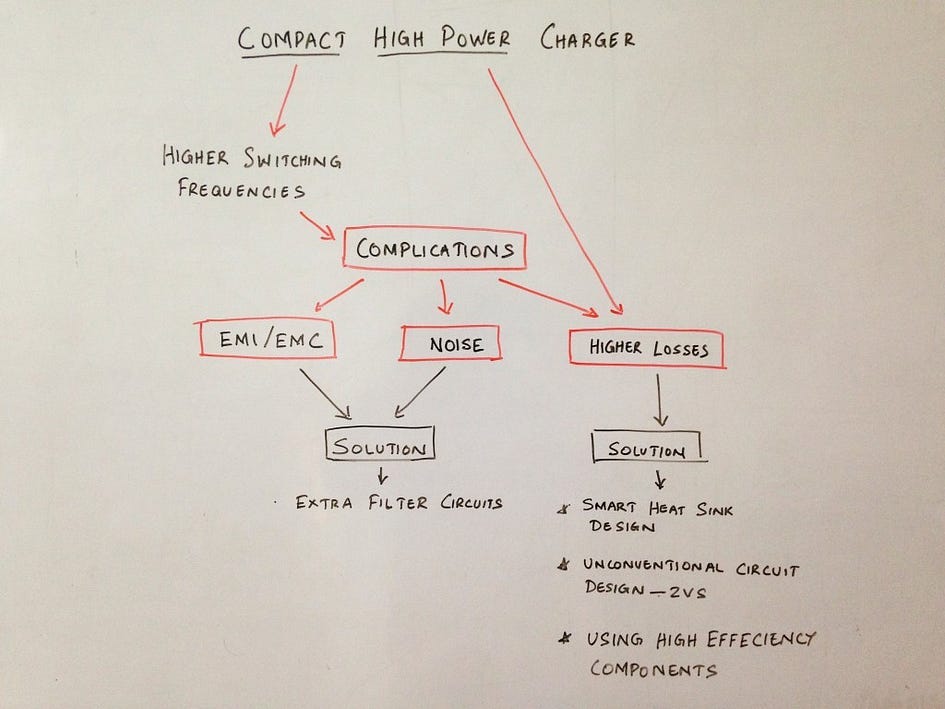 COMPACT HIGH POWER CHARGER
HIGHER SWITCHING
FREQUENCIES
COMPLICATIONS
EMI/EMC
NOISE
HIGHER LOSSES
SOLUTION
EXTRA FILTER CIRCUITS
SOLUTION
* SMART HEAT SINK
DESIGN
* UNCONVENTIONAL CIRCUIT
DESIGN – ZVS
* USING HIGH EFFECIENCY
COMPONENTS